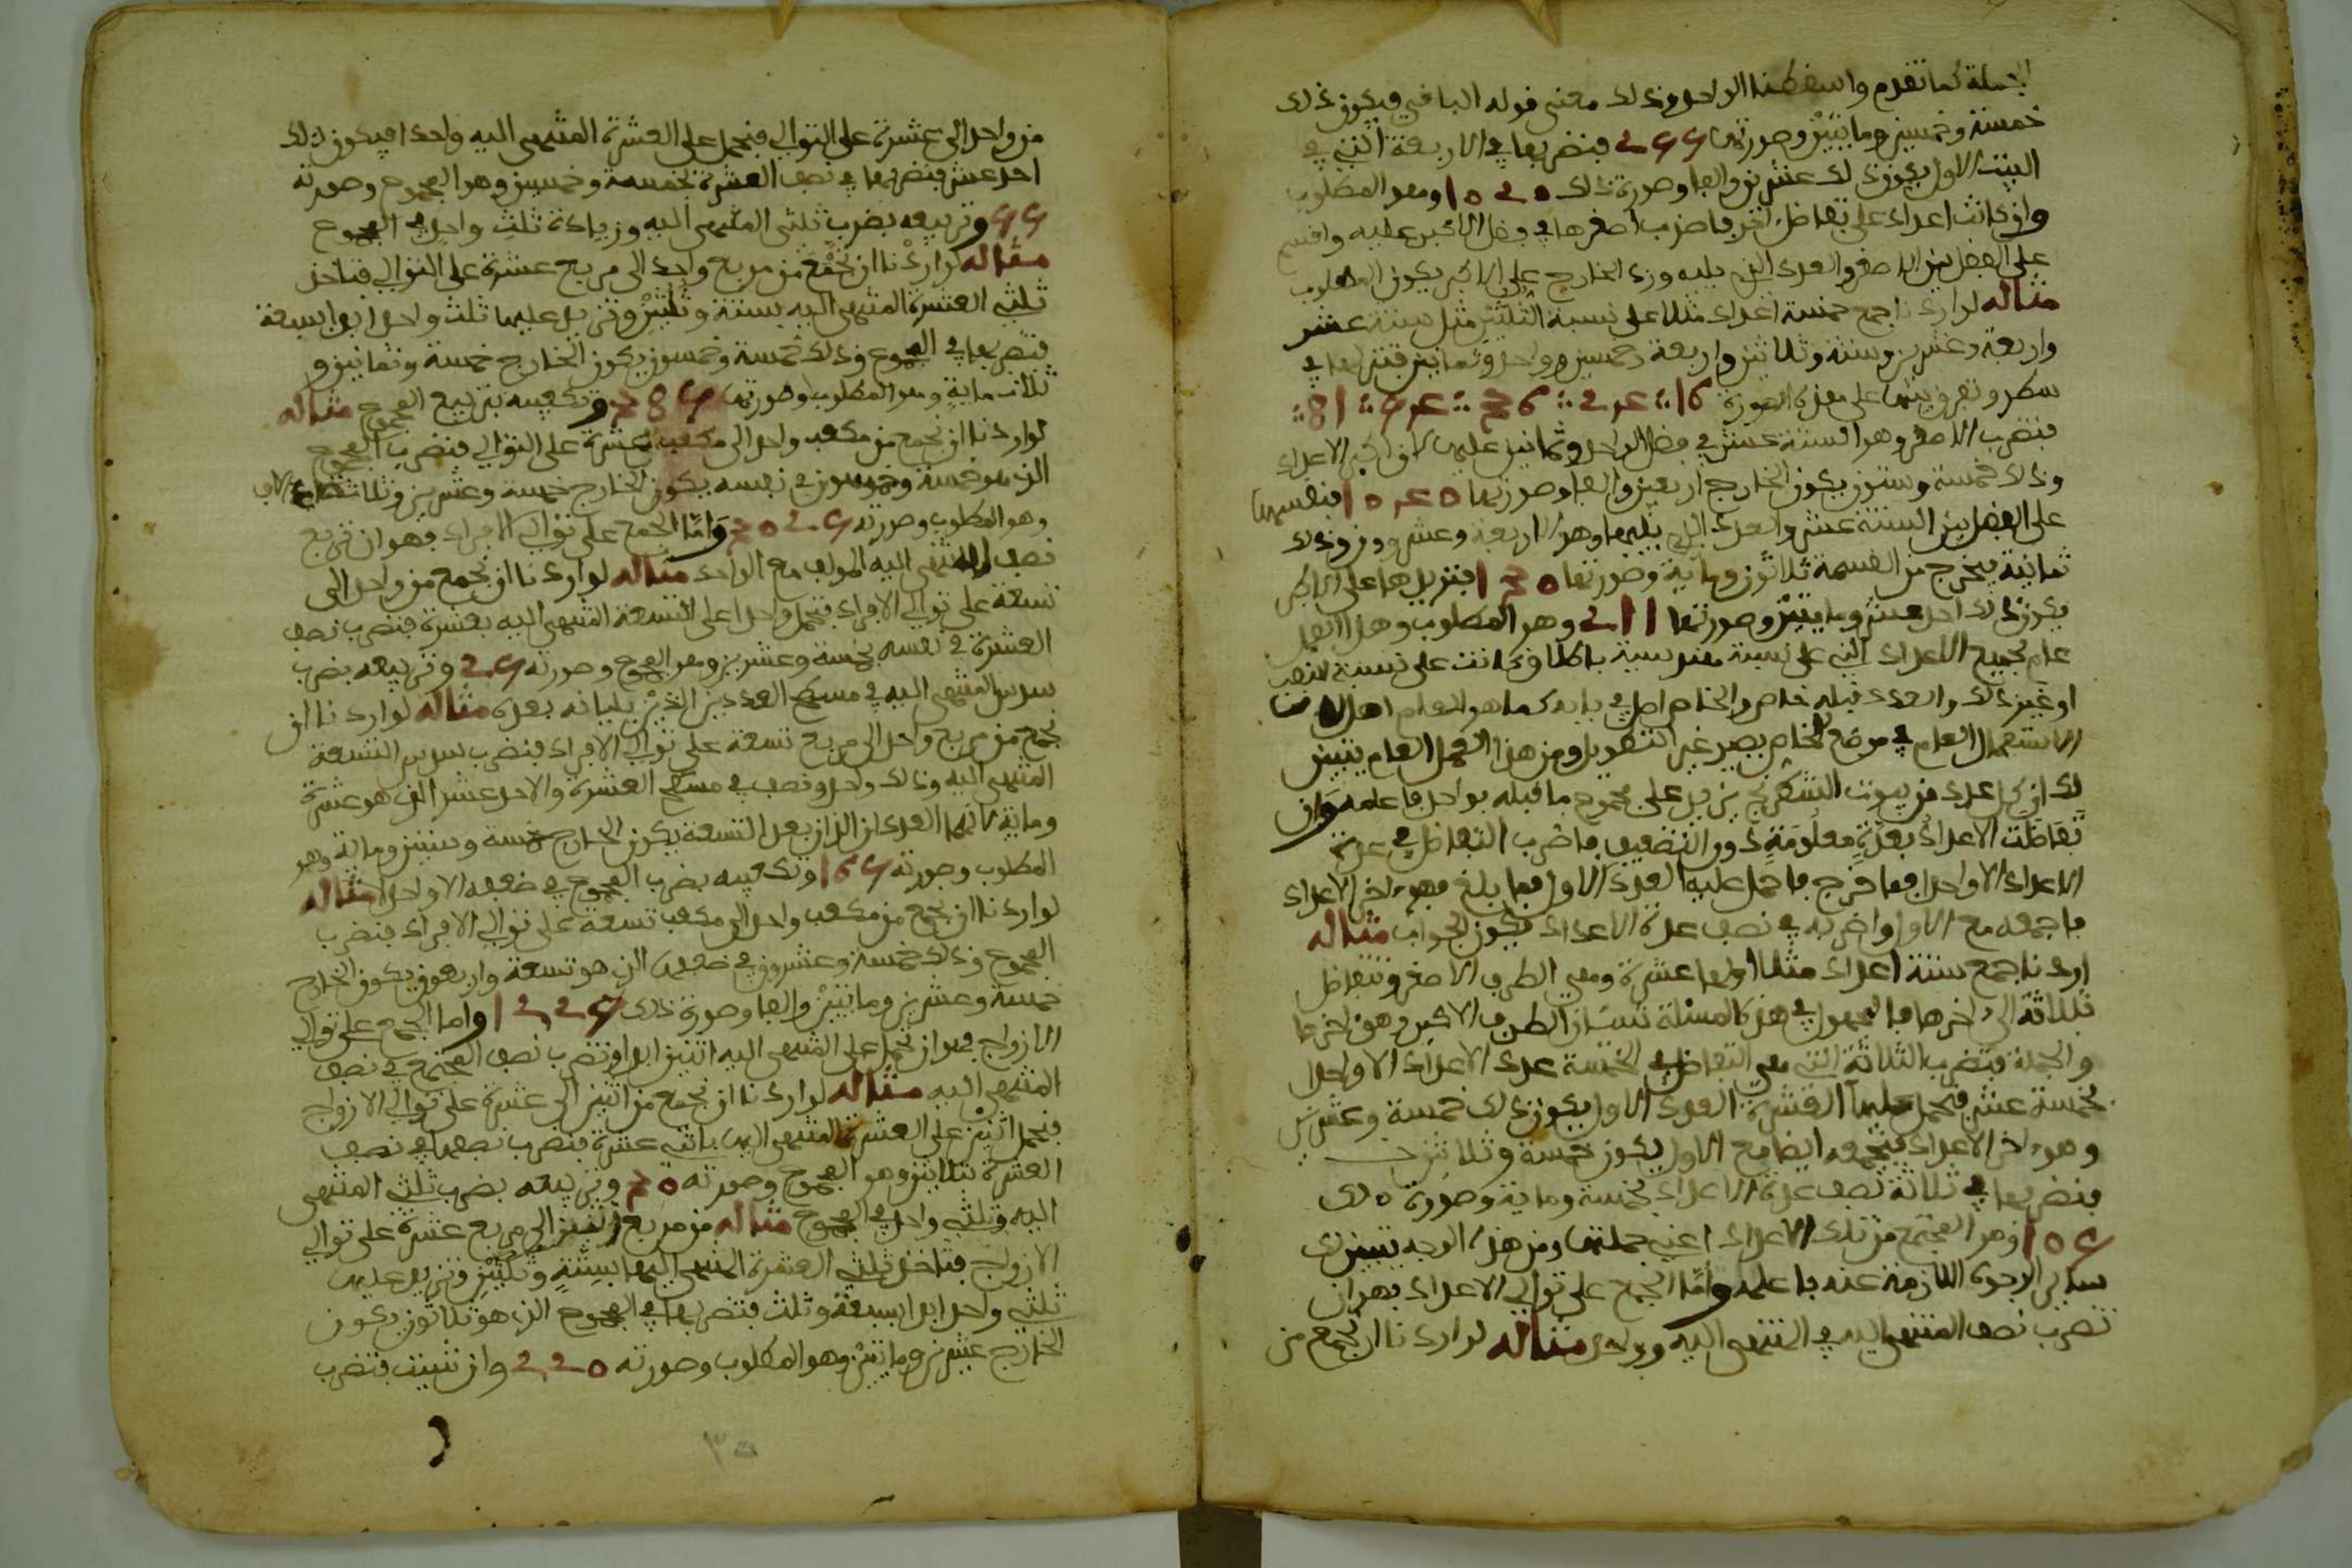 الجملة كما تقدم واسقطنا الواحد وذلك معنى قوله الباقي فيكون ذلك
خمسة وخمسين ومايتين وصورتها 255 فنضربها في الاربعة التي في
البيت الاول يكون ذلك عشرين والفا وصورة ذلك 1020 وهو المطلوب
وان كانت اعداد على تفاضل اخر فاضرب اصغرها في فضل الاكبر عليه واقسم
على الفضل بين الاصغر والعدد الذي يليه وزد الخارج على الاكبر يكون المطلوب
مثاله لو اردنا جمع خمسة اعداد مثلا على نسبة الثلثين مثل ستة عشر
واربعة وعشرين وستة وثلاثين واربعة وخمسين وواحد وثمانين فتنزلها في
سطر وتفرق بينها على هذه الصورة 16 ∴ 24 ∴ 36 ∴ 54 ∴ 81 ∴
فنضرب الاصغر وهو الستة عشر في فضل الواحد وثمانين عليها لانه اكبر الاعداد
وذلك خمسة وستون يكون الخارج اربعين والفا وصورتها 1040 فنقسمها
على الفضل بين الستة عشر والعدد الذي يليها وهو الاربعة وعشرون وذلك
ثمانية يخرج من القسمة ثلاثون ومائة وصورتها 130 فتزيدها على الاكبر
يكون ذلك احد عشر ومايتين وصورتها 211 وهو المطلوب وهذا العمل
عام لجميع الاعداد التي على نسبة هندسية باطلاق كانت على نسبة النصف
او غير ذلك والعدد قبله خاص والخاص اصل في بابه كما هو العام اصل
الاستعمال العام في موضع الخاص يصير غير التفضيل ومن هذا العمل العام يتبين
لك ان كل عدد من بيوت الشطرنج يزيد على مجموع ما قبله بواحد فاعلمه وان
تفاضلت الاعداد بعدة معلومة دون التضعيف فاضرب التفاضل في عدة
الاعداد الا واحدا فما خرج فاحمل عليه العدد الاول فما بلغ فهو اخر الاعداد
فاجمعه مع الاول واضربه في نصف عدة الاعداد يكون الجواب مثاله
اردنا جمع ستة اعداد مثلا اولها عشرة وهي الطرف الاصغر وتتفاضل
بثلاثة الى اخرها فالمجهول في هذه المسئلة شيئان الطرف الاكبر وهو اخرها
والجملة فنضرب الثلاثة التي هي التفاضل في الخمسة عدد الاعداد الا واحدا
بخمسة عشر فنحمل عليها العشرة العدد الاول يكون ذلك خمسة وعشرين
وهو اخر الاعداد فنجمعه ايضا مع الاول يكون خمسة وثلاثين
فنضربها في ثلاثة نصف عدة الاعداد بخمسة ومائة وصورة ذلك
105 وهو المجتمع من تلك الاعداد اعني جملتها ومن هذا الوجه تتبين لك
سائر الوجوه اللازمة عنه فاعلمه واما الجمع على توالي الاعداد فهو ان
تضرب نصف المنتهى اليه في المنتهى اليه وواحد مثاله لو اردنا ان نجمع من
من واحد الى عشرة على التوالي فنحمل على العشرة المنتهى اليه واحدا فيكون ذلك
احد عشر فنضربها في نصف العشرة بخمسة وخمسين وهو المجموع وصورته
55 وتربيعه بضرب ثلثي المنتهى اليه وزيادة ثلث واحد في المجموع
مثاله لو اردنا ان نجمع من مربع واحد الى مربع عشرة على التوالي فناخذ
ثلثي العشرة المنتهى اليه بستة وثلثين ونزيد عليها ثلث واحد ابدا بسبعة
فنضربها في المجموع وذلك خمسة وخمسون يكون الخارج خمسة وثمانين و
ثلاث ماية وهو المطلوب وصورتها 385 وتكعيبه بتربيع المجموع مثاله
لو اردنا ان نجمع من مكعب واحد الى مكعب عشرة على التوالي فنضرب المجموع
الذي هو خمسة وخمسون في نفسه يكون الخارج خمسة وعشرين وثلاثة الاف
وهو المطلوب وصورته 3025 واما الجمع على توالي الافراد فهو ان تربع
نصف المنتهى اليه المولف مع الواحد مثاله لو اردنا ان نجمع من واحد الى
تسعة على توالي الافراد فنحمل واحدا على التسعة المنتهى اليه بعشرة فنضرب نصف
العشرة في نفسه بخمسة وعشرين وهو المجموع وصورته 25 وتربيعه بضرب
سدس المنتهى اليه في مسطح العددين الذين يليانه بعده مثاله لو اردنا ان
نجمع من مربع واحد الى مربع تسعة على توالي الافراد فنضرب سدس التسعة
المنتهى اليه وذلك واحد ونصف في مسطح العشرة والاحد عشر الذي هو عشرة
وماية لانهما العددان اللذان بعد التسعة يكون الخارج خمسة وستين وماية وهو
المطلوب وصورته 165 وتكعيبه بضرب المجموع في ضعفه الا واحدا مثاله
لو اردنا ان نجمع من مكعب واحد الى مكعب تسعة على توالي الافراد فنضرب
المجموع وذلك خمسة وعشرون في ضعفها الذي هو تسعة واربعون يكون الخارج
خمسة وعشرين ومايتين والفا وصورة ذلك 1225 واما الجمع على توالي
الازواج فهو ان تحمل على المنتهى اليه اثنين ابدا وتضرب نصف المجتمع في نصف
المنتهى اليه مثاله لو اردنا ان نجمع من اثنين الى عشرة على توالي الازواج
فنحمل اثنين على العشرة المنتهى اليها باثني عشرة فنضرب نصفها في نصف
العشرة بثلاثين وهو المجموع وصورته 30 وتربيعه بضرب ثلثي المنتهى
اليه وثلثي واحد في المجموع مثاله من مربع اثنين الى مربع عشرة على توالي
الازواج فناخذ ثلثي العشرة المنتهى اليها بستة وثلثين ونزيد عليها
ثلثي واحد ابدا بسبعة وثلث فنضربها في المجموع الذي هو ثلاثون يكون
الخارج عشرين ومايتين وهو المطلوب وصورته 220 وان شيت فتضرب
٣٥